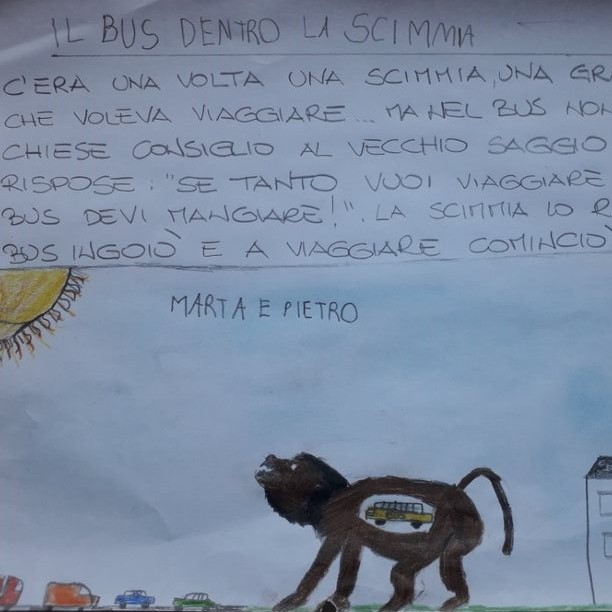 IL BUS DENTRO LA SCIMMIA
C'ERA UNA VOLTA UNA SCIMMIA, UNA GRA
CHE VOLEVA VIAGGIARE... MA NEL BUS NON
CHIESE CONSIGLIO AL VECCHIO SAGGIO
RISPOSE: "SE TANTO VUOI VIAGGIARE
BUS DEVI MANGIARE!". LA SCIMMIA LO R
BUS INGOIÒ E A VIAGGIARE COMINCIÒ
MARTA E PIETRO